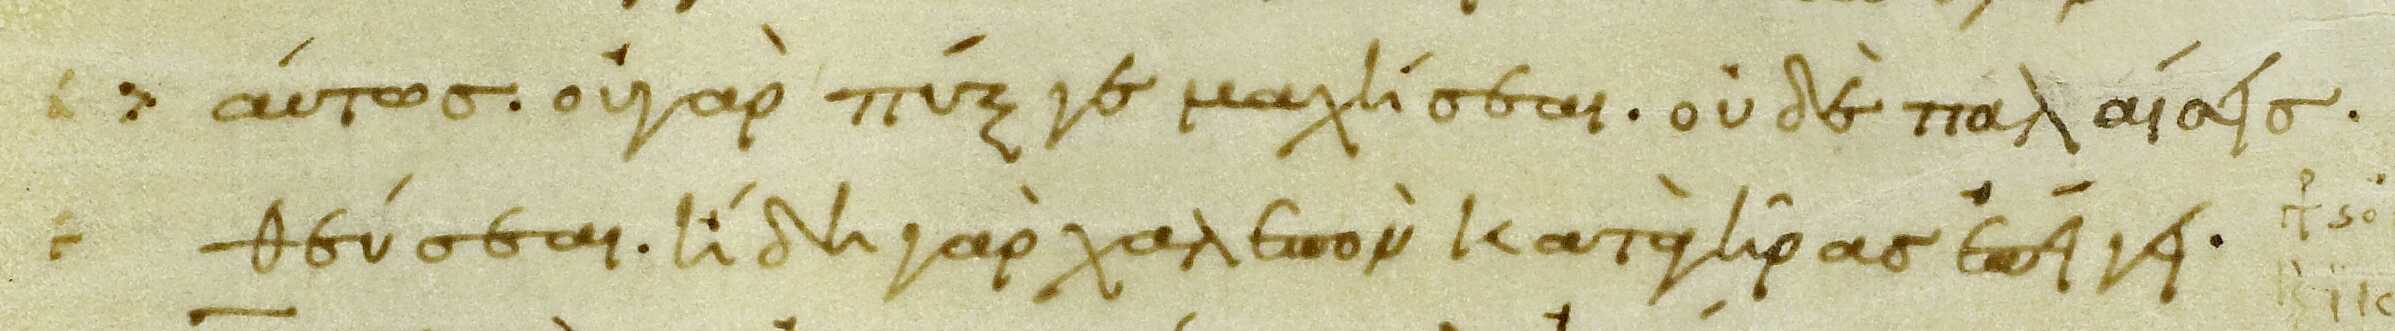 αύτως. οὐ γὰρ πύξ γε μαχήσεαι. οὐδὲ παλαίσεις.
θεύσεαι. ἤδη γὰρ χαλεπὸν κατὰ γῆρας ἐπείγει.